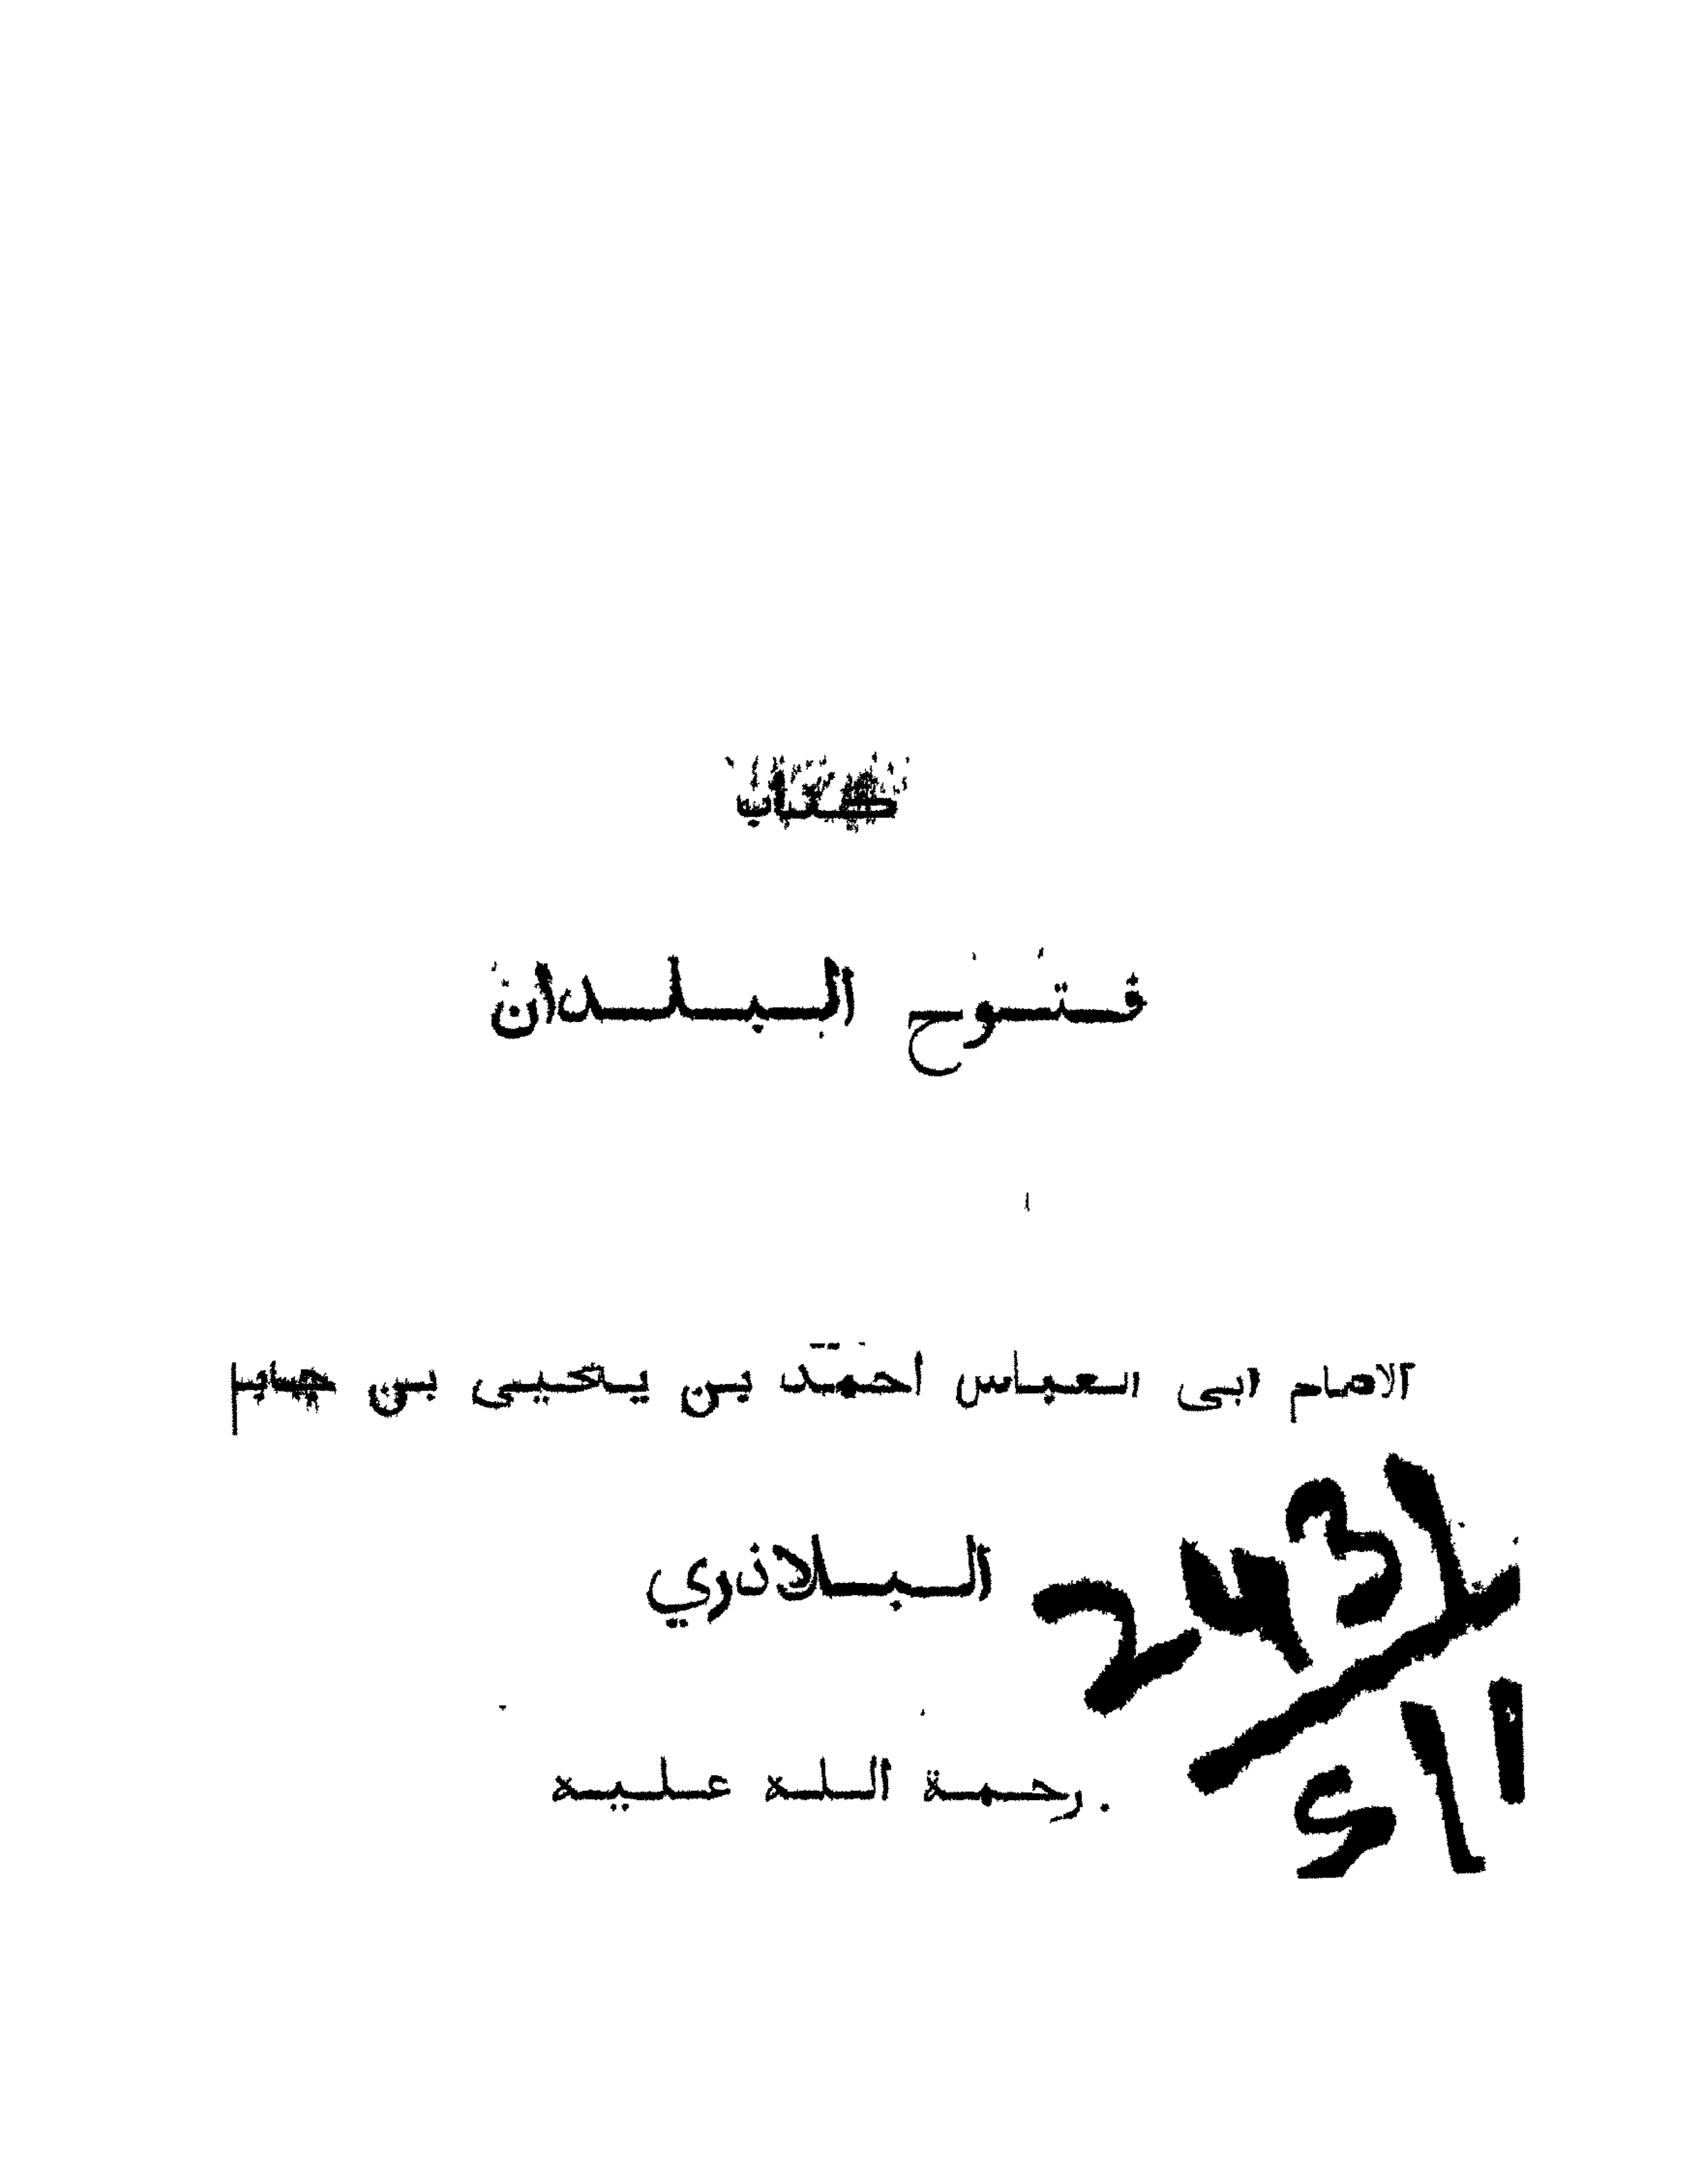 كتاب
فتوح البلدان
الامام ابى العباس احمد بن يحيى بن جابر
البلاذري
رحمة الله عليه